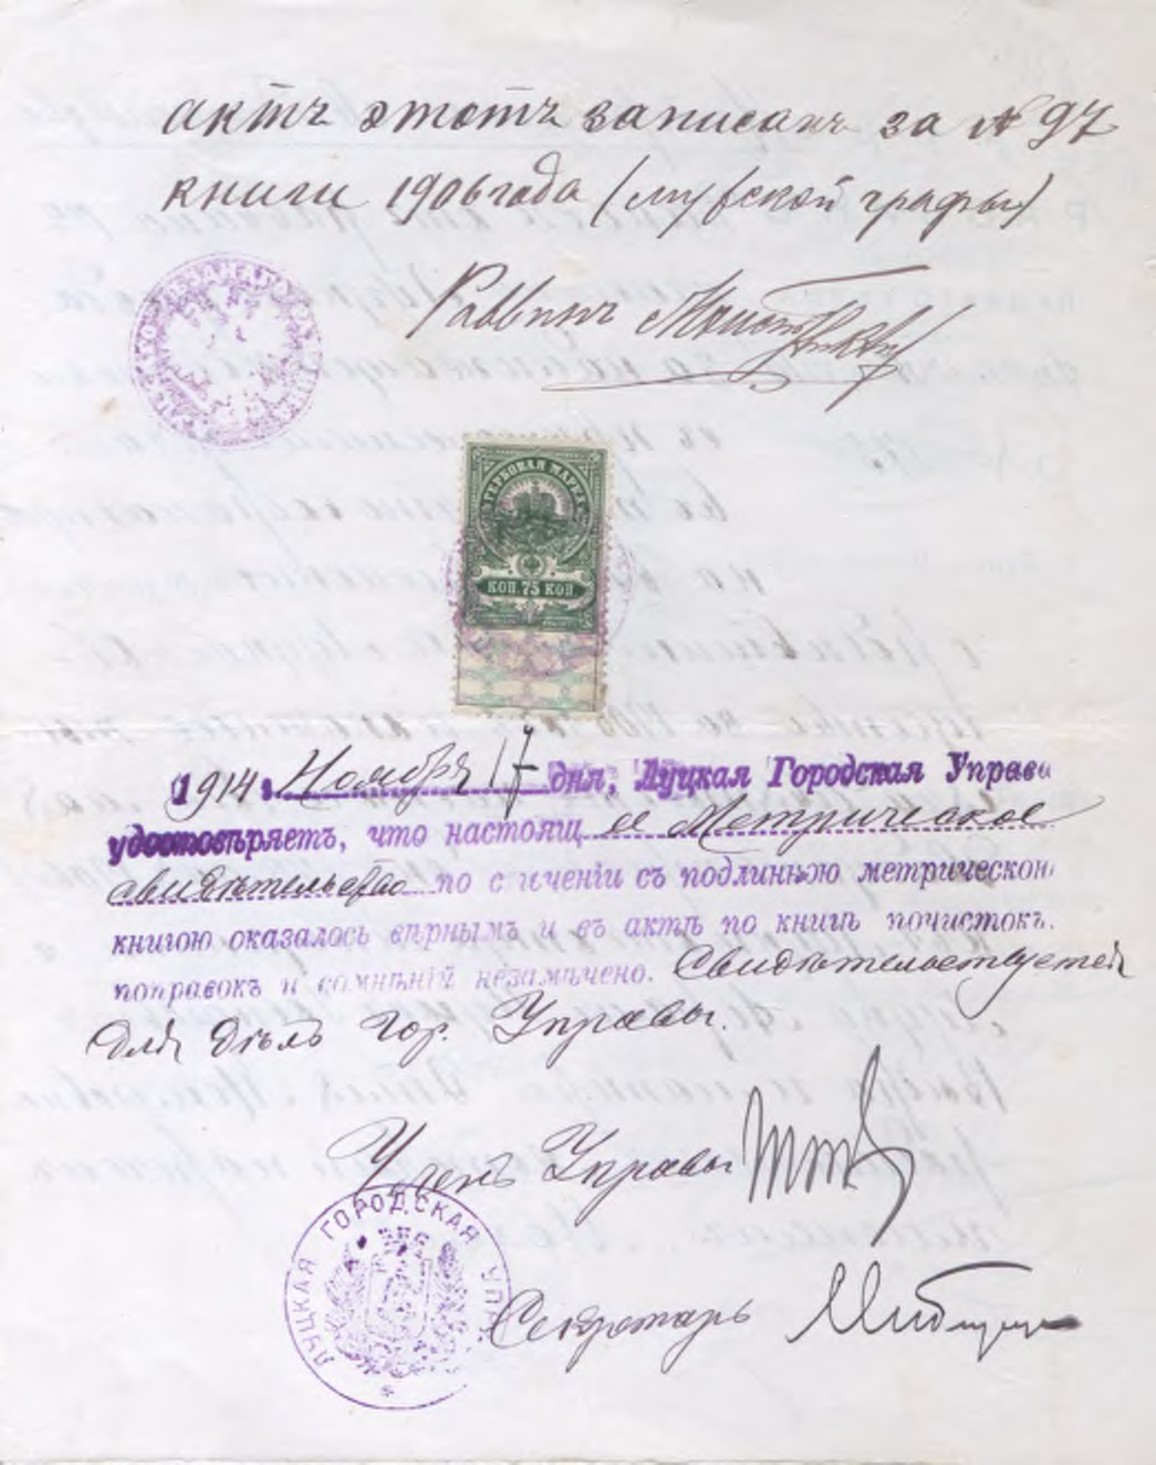 актъ этотъ записанъ за № 97
книги 1906 года (мужской графы)
Раввинъ
ГЕРБОВАЯ МАРКА
КОП. 75 КОП.
1914 г. Ноября 17 дня, Луцкая Городская Управа
удостовѣряетъ, что настоящ ее Метрическое
свидѣтельство по сличеніи съ подлинною метрическою
книгою оказалось вѣрнымъ и въ актѣ по книгѣ почистокъ,
поправокъ и сомнѣній незамѣчено. Свидѣтельствуется
для дѣлъ Гор. Управы.
Членъ Управы
ЛУЦКАЯ ГОРОДСКАЯ УПР
Секретарь